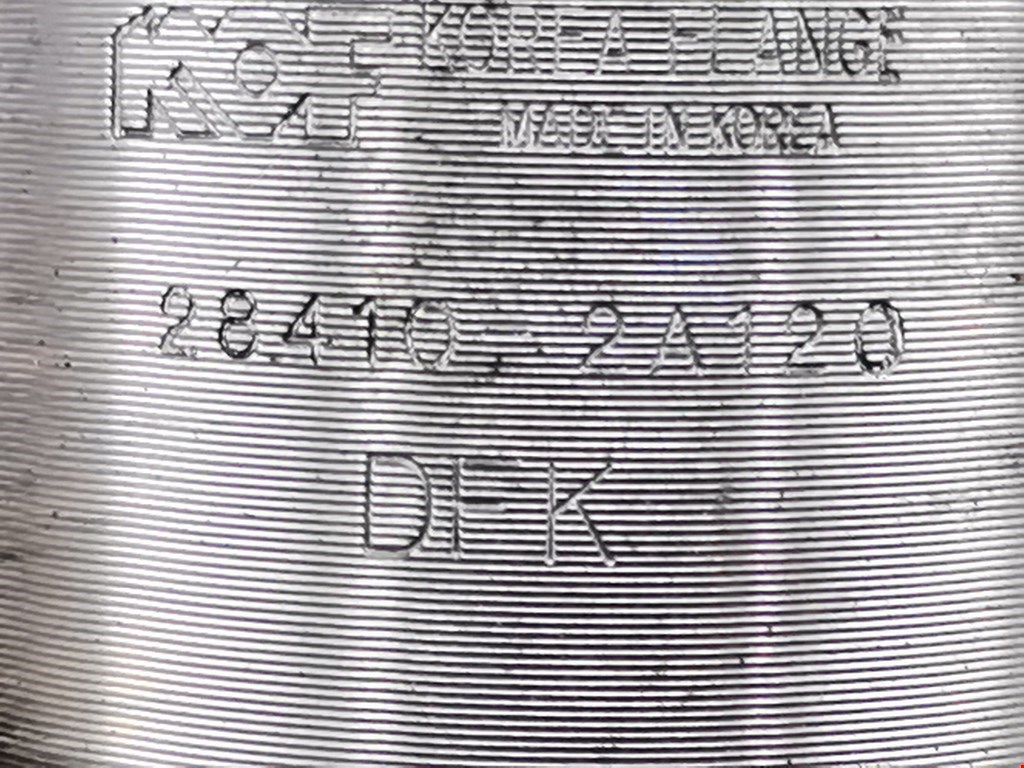 KCF KOREA FLANGE
MADE IN KOREA
28410-2A120
DFK